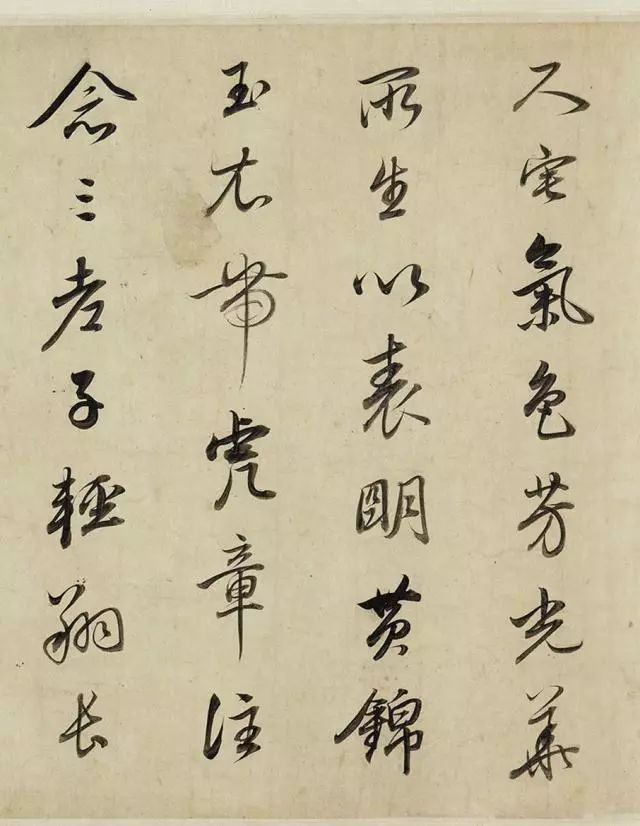 尺宅氣色芳光華
所生以表明黄錦
玉衣帶虎章注
念三老子輕翔長